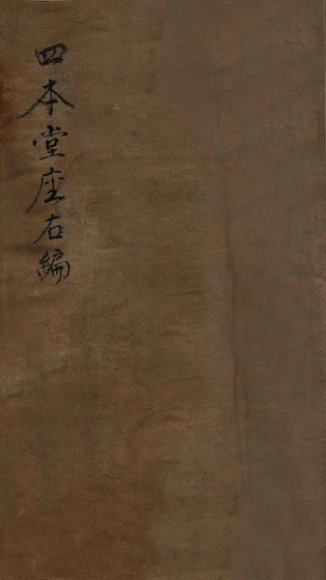 四本堂座右編